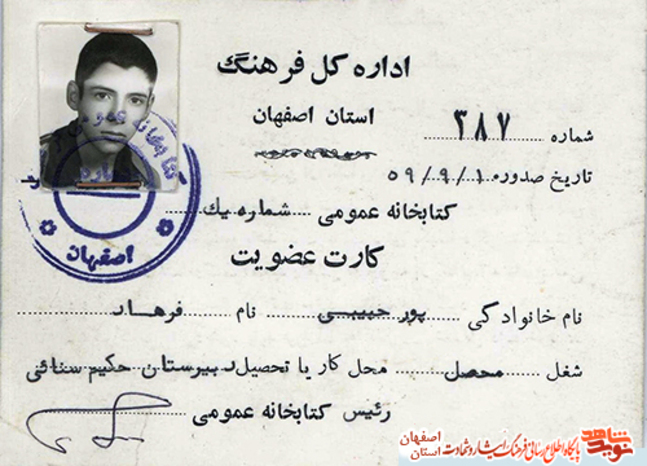 اداره کل فرهنگ
استان اصفهان
شماره ۳۸۷
تاریخ صدور ۵۹/۹/۱۰
کتابخانه عمومی شماره یک
کارت عضویت
نام خانوادگی پورحبیبی نام فرهاد
شغل محصل محل کار یا تحصیل دبیرستان حکیم سنائی
رئیس کتابخانه عمومی
کتابخانه عمومی
اصفهان
نوید شاهد
پایگاه اطلاع رسانی فرهنگ ایثار و شهادت
اصفهان
استان